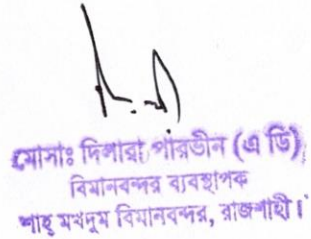 মোসাঃ দিলারা পারভীন (এ ডি)
বিমানবন্দর ব্যবস্থাপক
শাহ্ মখদুম বিমানবন্দর, রাজশাহী।